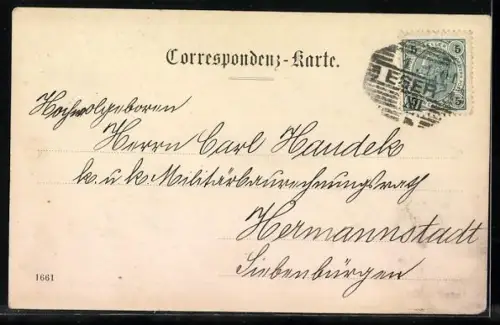 Correspondenz-Karte.
5 5
5
EGER
Hochwolgeboren
Herrn Carl Handek
k. u. k. Militärbaurechnungsrath
Hermannstadt
Siebenbürgen
1661